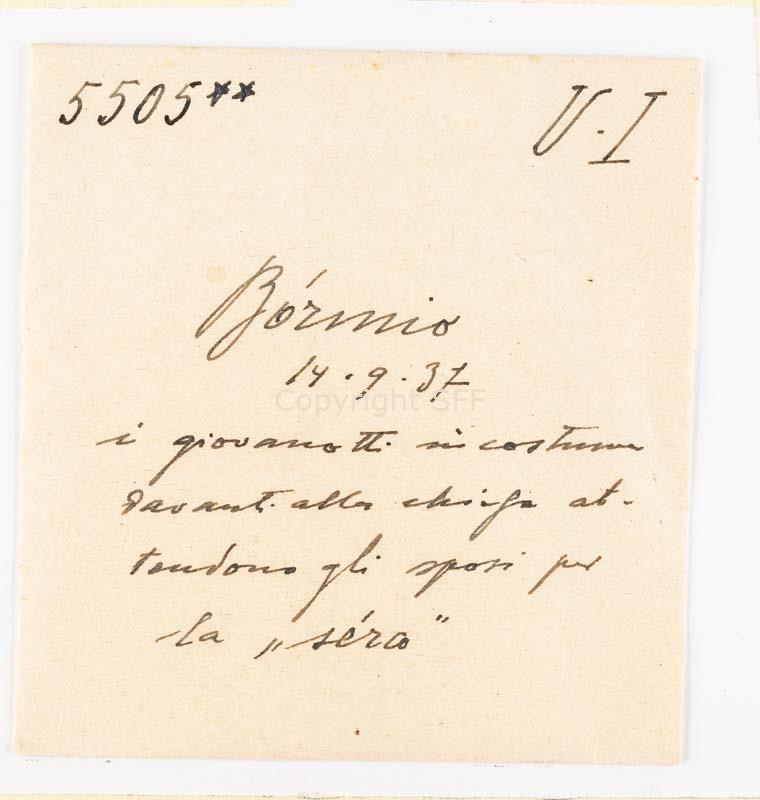 5505** U.I
Bórmio
14.9.37
Copyright SFF
i giovanotti in costume
davanti alla chiesa at-
tendono gli sposi per
la „séra"